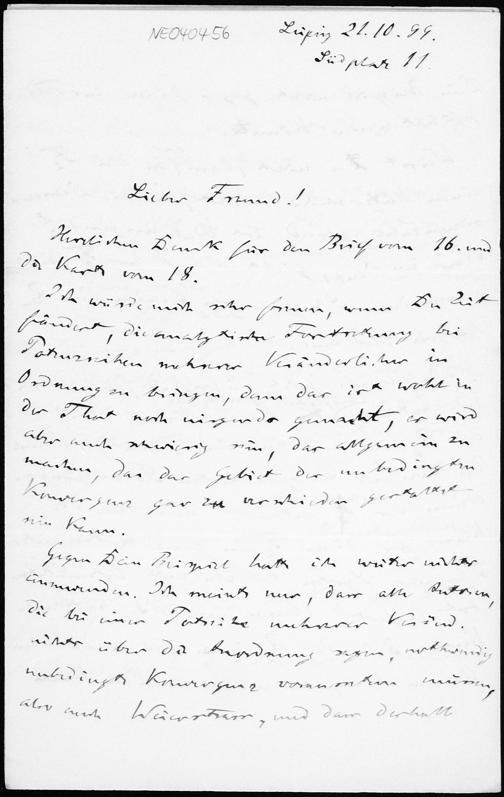 NE040456
Leipzig 21.10.99.
Südplatz 11.
Lieber Freund!
Herzlichen Dank für den Brief vom 16. und
die Karte vom 18.
Ich würde mich sehr freuen, wenn Du Zeit
fändest, die analytische Fortsetzung bei
Potenzreihen mehrerer Veränderlicher in
Ordnung zu bringen, denn das ist wohl in
der That noch nirgends gemacht, es wird
aber auch schwierig sein, das allgemein zu
machen, da das Gebiet der unbedingten
Konvergenz gar zu verschieden gestaltet
sein kann.
Gegen Dein Beispiel hatte ich weiter nichts
einzuwenden. Ich meinte nur, dass alle Autoren,
die bei einer Potreihe mehrerer Veränd.
nichts über die Anordnung sagen, nothwendig
unbedingte Konvergenz voraussetzen müssen,
also auch Weierstrass, und dass deshalb